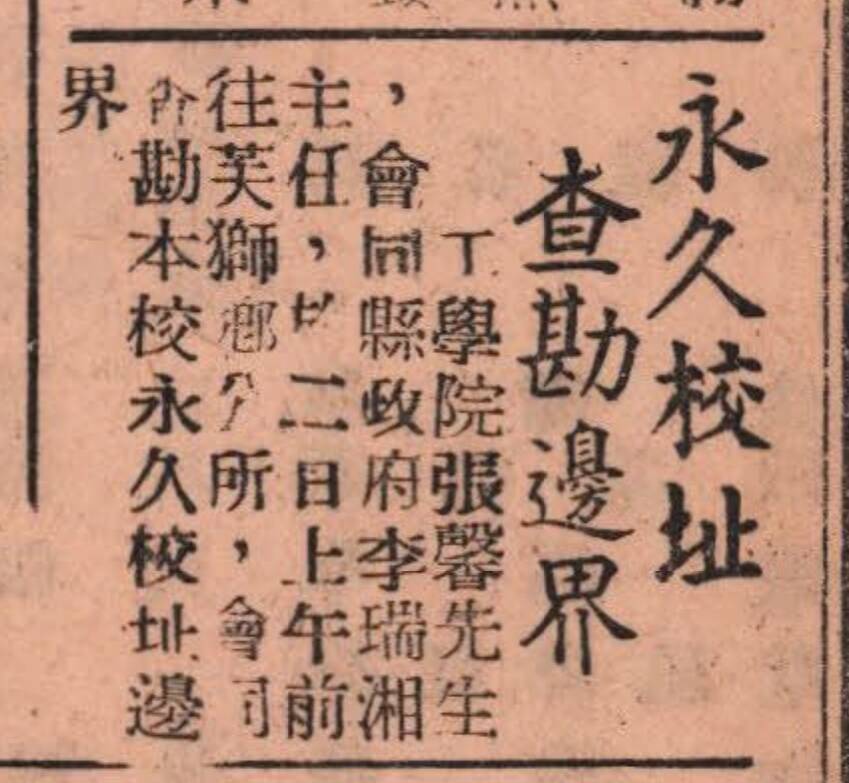 永久校址
查勘邊界
工學院張馨先生
，會同縣政府李瑞湘
主任，於二日上午前
往芙獅鄉公所，會同
勘本校永久校址邊
界